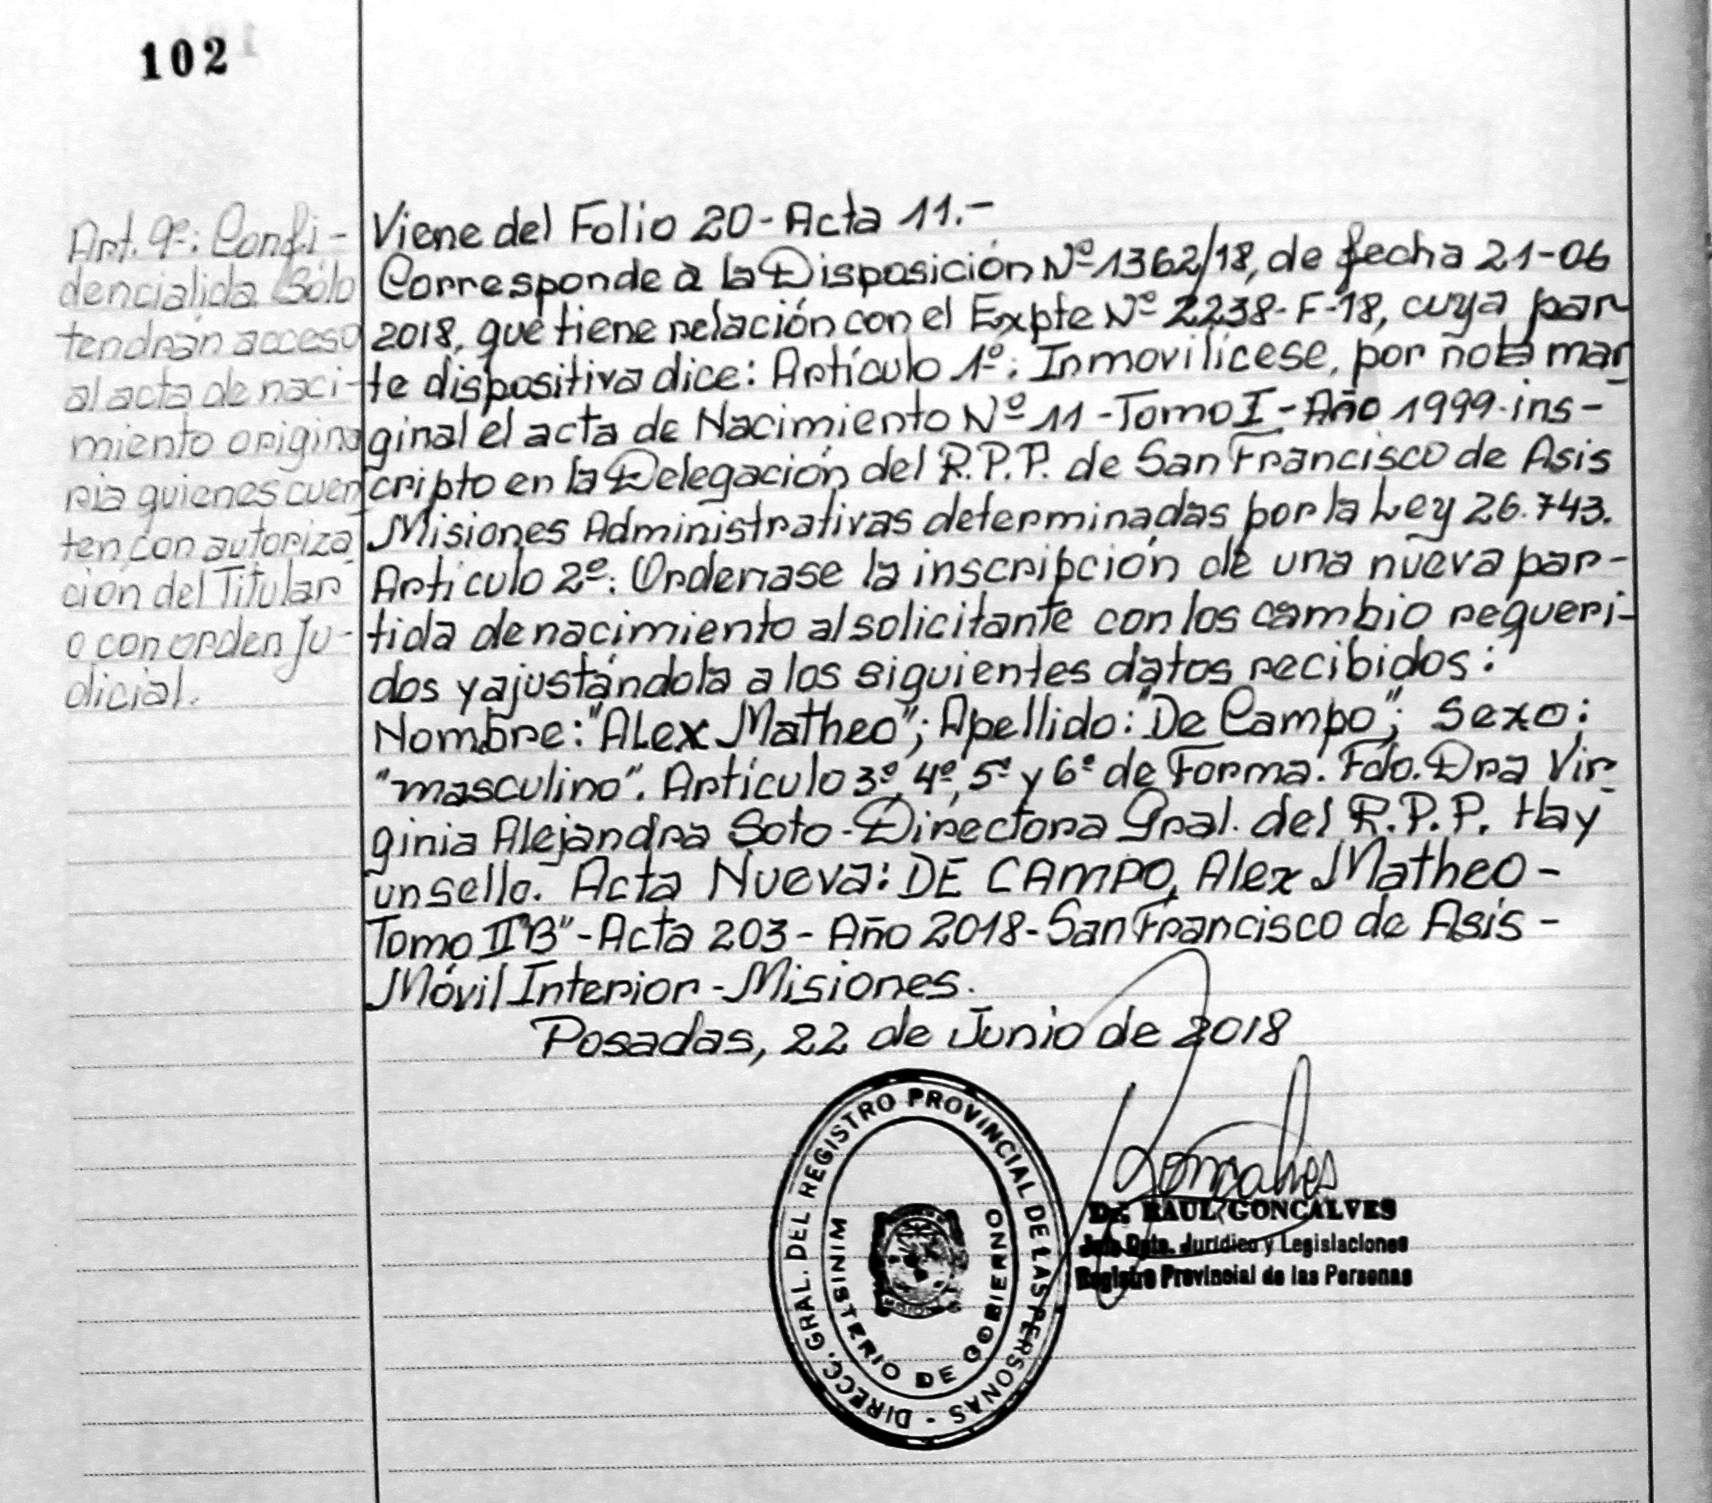 102
Art. 9º: Confi-
dencialida. Sólo
tendrán acceso
al acta de naci-
miento origina
ria quienes cuen
ten con autoriza
ción del Titular
o con orden Ju-
dicial.
Viene del Folio 20 - Acta 11.-
Corresponde a la Disposición Nº 1362/18, de fecha 21-06
2018, que tiene relación con el Expte Nº 2238-F-18, cuya par-
te dispositiva dice: Artículo 1º: Inmovilícese, por nota mar
ginal el acta de Nacimiento Nº 11 - Tomo I - Año 1999-ins-
cripto en la Delegación del R.P.P. de San Francisco de Asis
Misiones Administrativas determinadas por la Ley 26.743.
Artículo 2º: Ordenase la inscripción de una nueva par-
tida de nacimiento al solicitante con los cambio requeri-
dos y ajustándola a los siguientes datos recibidos:
Nombre: "Alex Matheo"; Apellido: "De Campo"; Sexo:
"masculino". Artículo 3º, 4º, 5º y 6º de Forma. Fdo. Dra Vir-
ginia Alejandra Soto - Directora Gral. del R.P.P. Hay
un sello. Acta Nueva: DE CAMPO, Alex Matheo -
Tomo II "B" - Acta 203 - Año 2018 - San Francisco de Asis -
Móvil Interior - Misiones.
Posadas, 22 de Junio de 2018
DIRECC. GRAL. DEL REGISTRO PROVINCIAL DE LAS PERSONAS -
MINISTERIO DE GOBIERNO
Goncalves
Dr. RAUL GONCALVES
Jefe Dpto. Jurídico y Legislaciones
Registro Provincial de las Personas